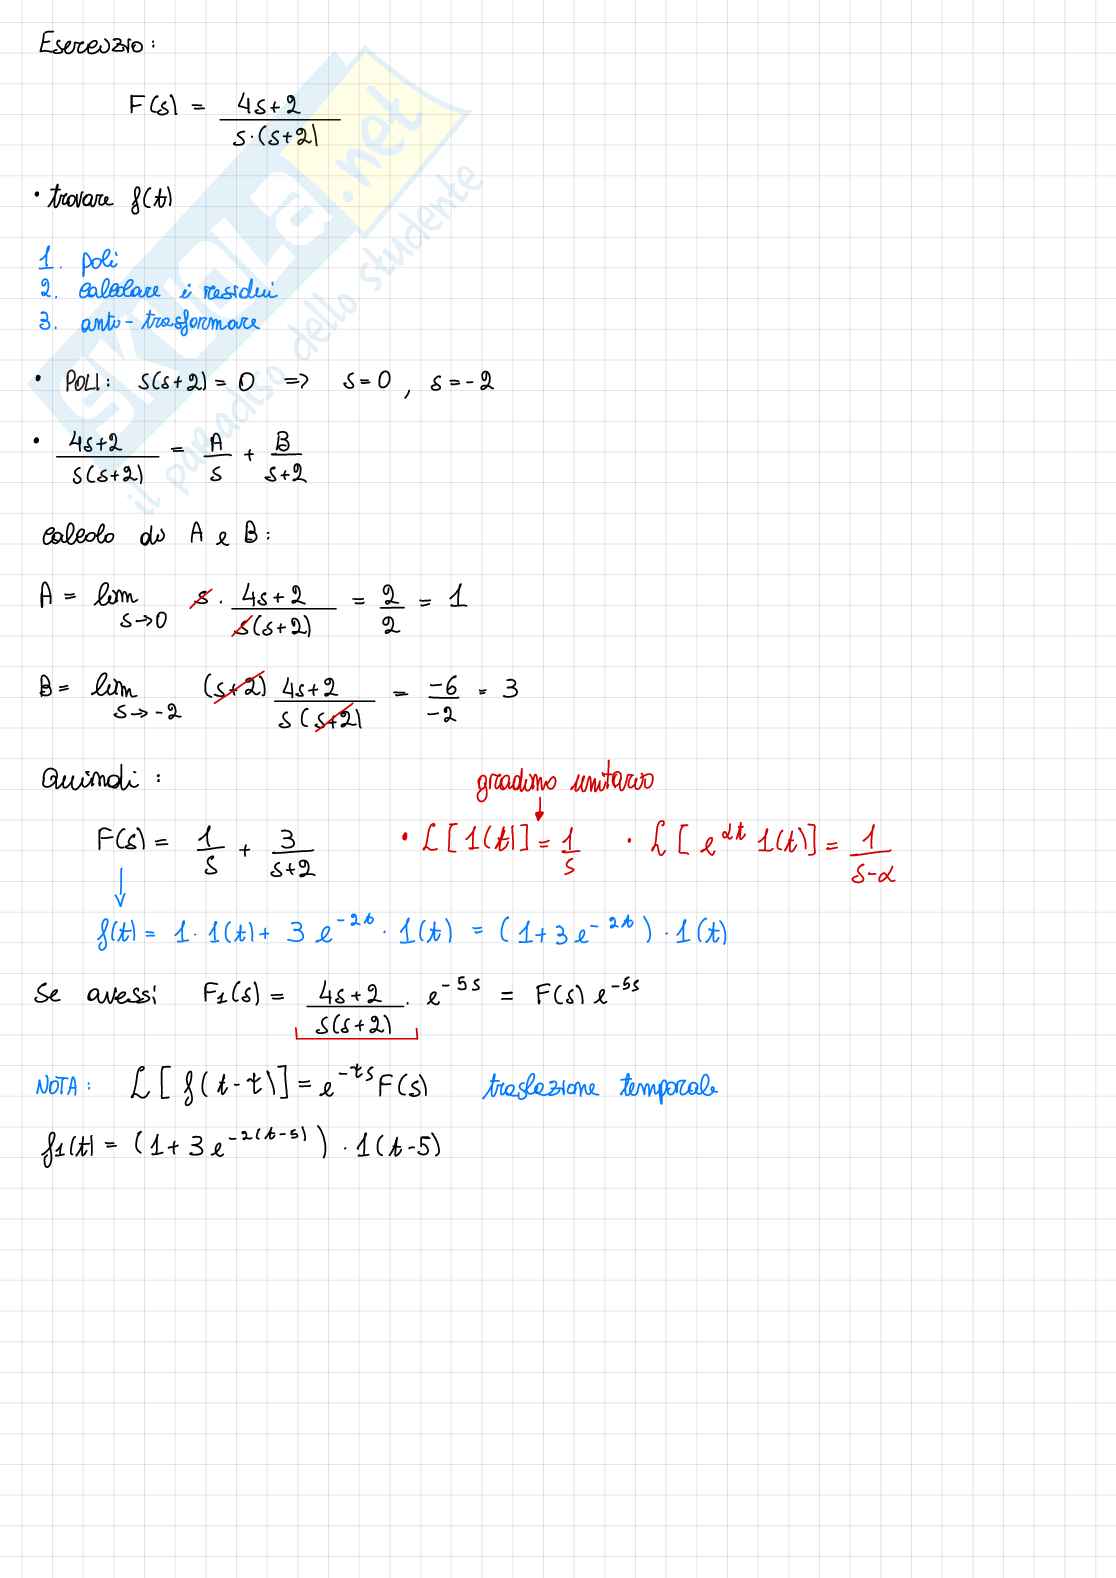 Esercizio:
F(s) = 4s+2 / s·(s+2)
• trovare f(t)
1. poli
2. calcolare i residui
3. anti-trasformare
• POLI: s(s+2)=0 => s=0, s=-2
• 4s+2 / s(s+2) = A/s + B/s+2
calcolo di A e B:
A = lim s→0 s · 4s+2 / s(s+2) = 2/2 = 1
B = lim s→-2 (s+2) 4s+2 / s(s+2) = -6/-2 = 3
Quindi:
gradino unitario
F(s) = 1/s + 3/s+2 • L[1(t)] = 1/s • L[e^αt 1(t)] = 1/s-α
f(t) = 1·1(t) + 3e^-2t · 1(t) = (1+3e^-2t)·1(t)
Se avessi F1(s) = 4s+2 / s(s+2) · e^-5s = F(s) e^-5s
NOTA: L[f(t-τ)] = e^-τs F(s) traslazione temporale
f1(t) = (1+3e^-2(t-5))·1(t-5)
SKUOLA.net
il paradiso dello studente